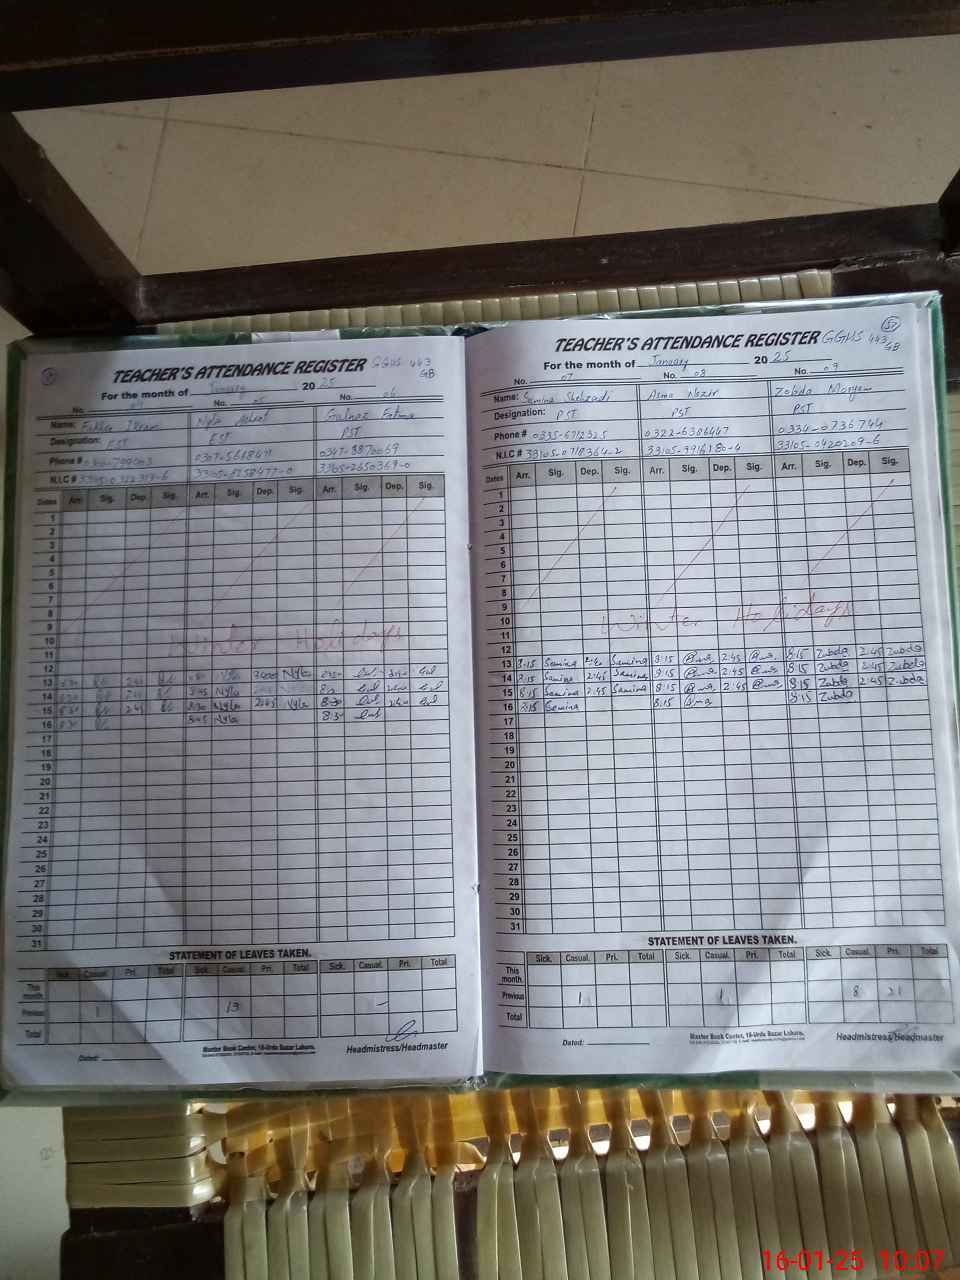 TEACHER'S ATTENDANCE REGISTER GGHS 443 GB
For the month of January 20 25
No. No. 05 No. 06
Name: Nyla Gulnaz Fatima
Designation: EST EST PST
Phone #
N.I.C #
Dates Arr. Sig. Dep. Sig. Arr. Sig. Dep. Sig. Arr. Sig. Dep. Sig.
1
2
3
4
5
6
7
8
9
10
11
Winter Holidays
12
13 Nyla Nyla
14 8:45 Nyla
15 8:30 2:45 8:30 Nyla 2:45 Nyla 8:30
16 8:45 Nyla 8:30
17
18
19
20
21
22
23
24
25
26
27
28
29
30
31
STATEMENT OF LEAVES TAKEN.
Sick. Casual. Pri. Total Sick. Casual. Pri. Total Sick. Casual. Pri. Total
This month.
Previous 1 13 -
Total
Dated:
Master Book Center, 18-Urdu Bazar Lahore.
Headmistress/Headmaster
57
TEACHER'S ATTENDANCE REGISTER GGHS 443 GB
For the month of January 20 25
No. 07 No. 08 No. 09
Name: Samina Shehzadi Asma Nazir Zobda Maryam
Designation: PST PST PST
Phone # 0335-6712325 0322-6386447 0334-0736744
N.I.C # 33105-0718364-2 33105-9916180-4 33105-0420209-6
Dates Arr. Sig. Dep. Sig. Arr. Sig. Dep. Sig. Arr. Sig. Dep. Sig.
1
2
3
4
5
6
7
8
9
10
11
Winter Holidays
12
13 8:15 Samina Samina 8:15 2:45 8:15 Zubda 2:45 Zubda
14 8:15 Samina 2:45 Samina 8:15 2:45 8:15 Zubda 2:45 Zubda
15 8:15 Samina 2:45 Samina 8:15 2:45 8:15 Zubda 2:45 Zubda
16 8:15 Samina 8:15 8:15 Zubda
17
18
19
20
21
22
23
24
25
26
27
28
29
30
31
STATEMENT OF LEAVES TAKEN.
Sick. Casual. Pri. Total Sick. Casual. Pri. Total Sick. Casual. Pri. Total
This month.
Previous 1 1 8 21
Total
Dated:
Master Book Center, 18-Urdu Bazar Lahore.
Headmistress/Headmaster
16-01-25 10:07